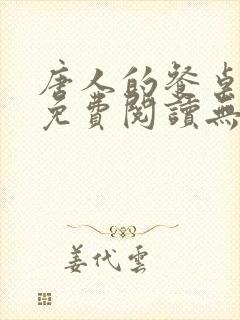 唐人的餐桌
免費閱讀無
姜代雲